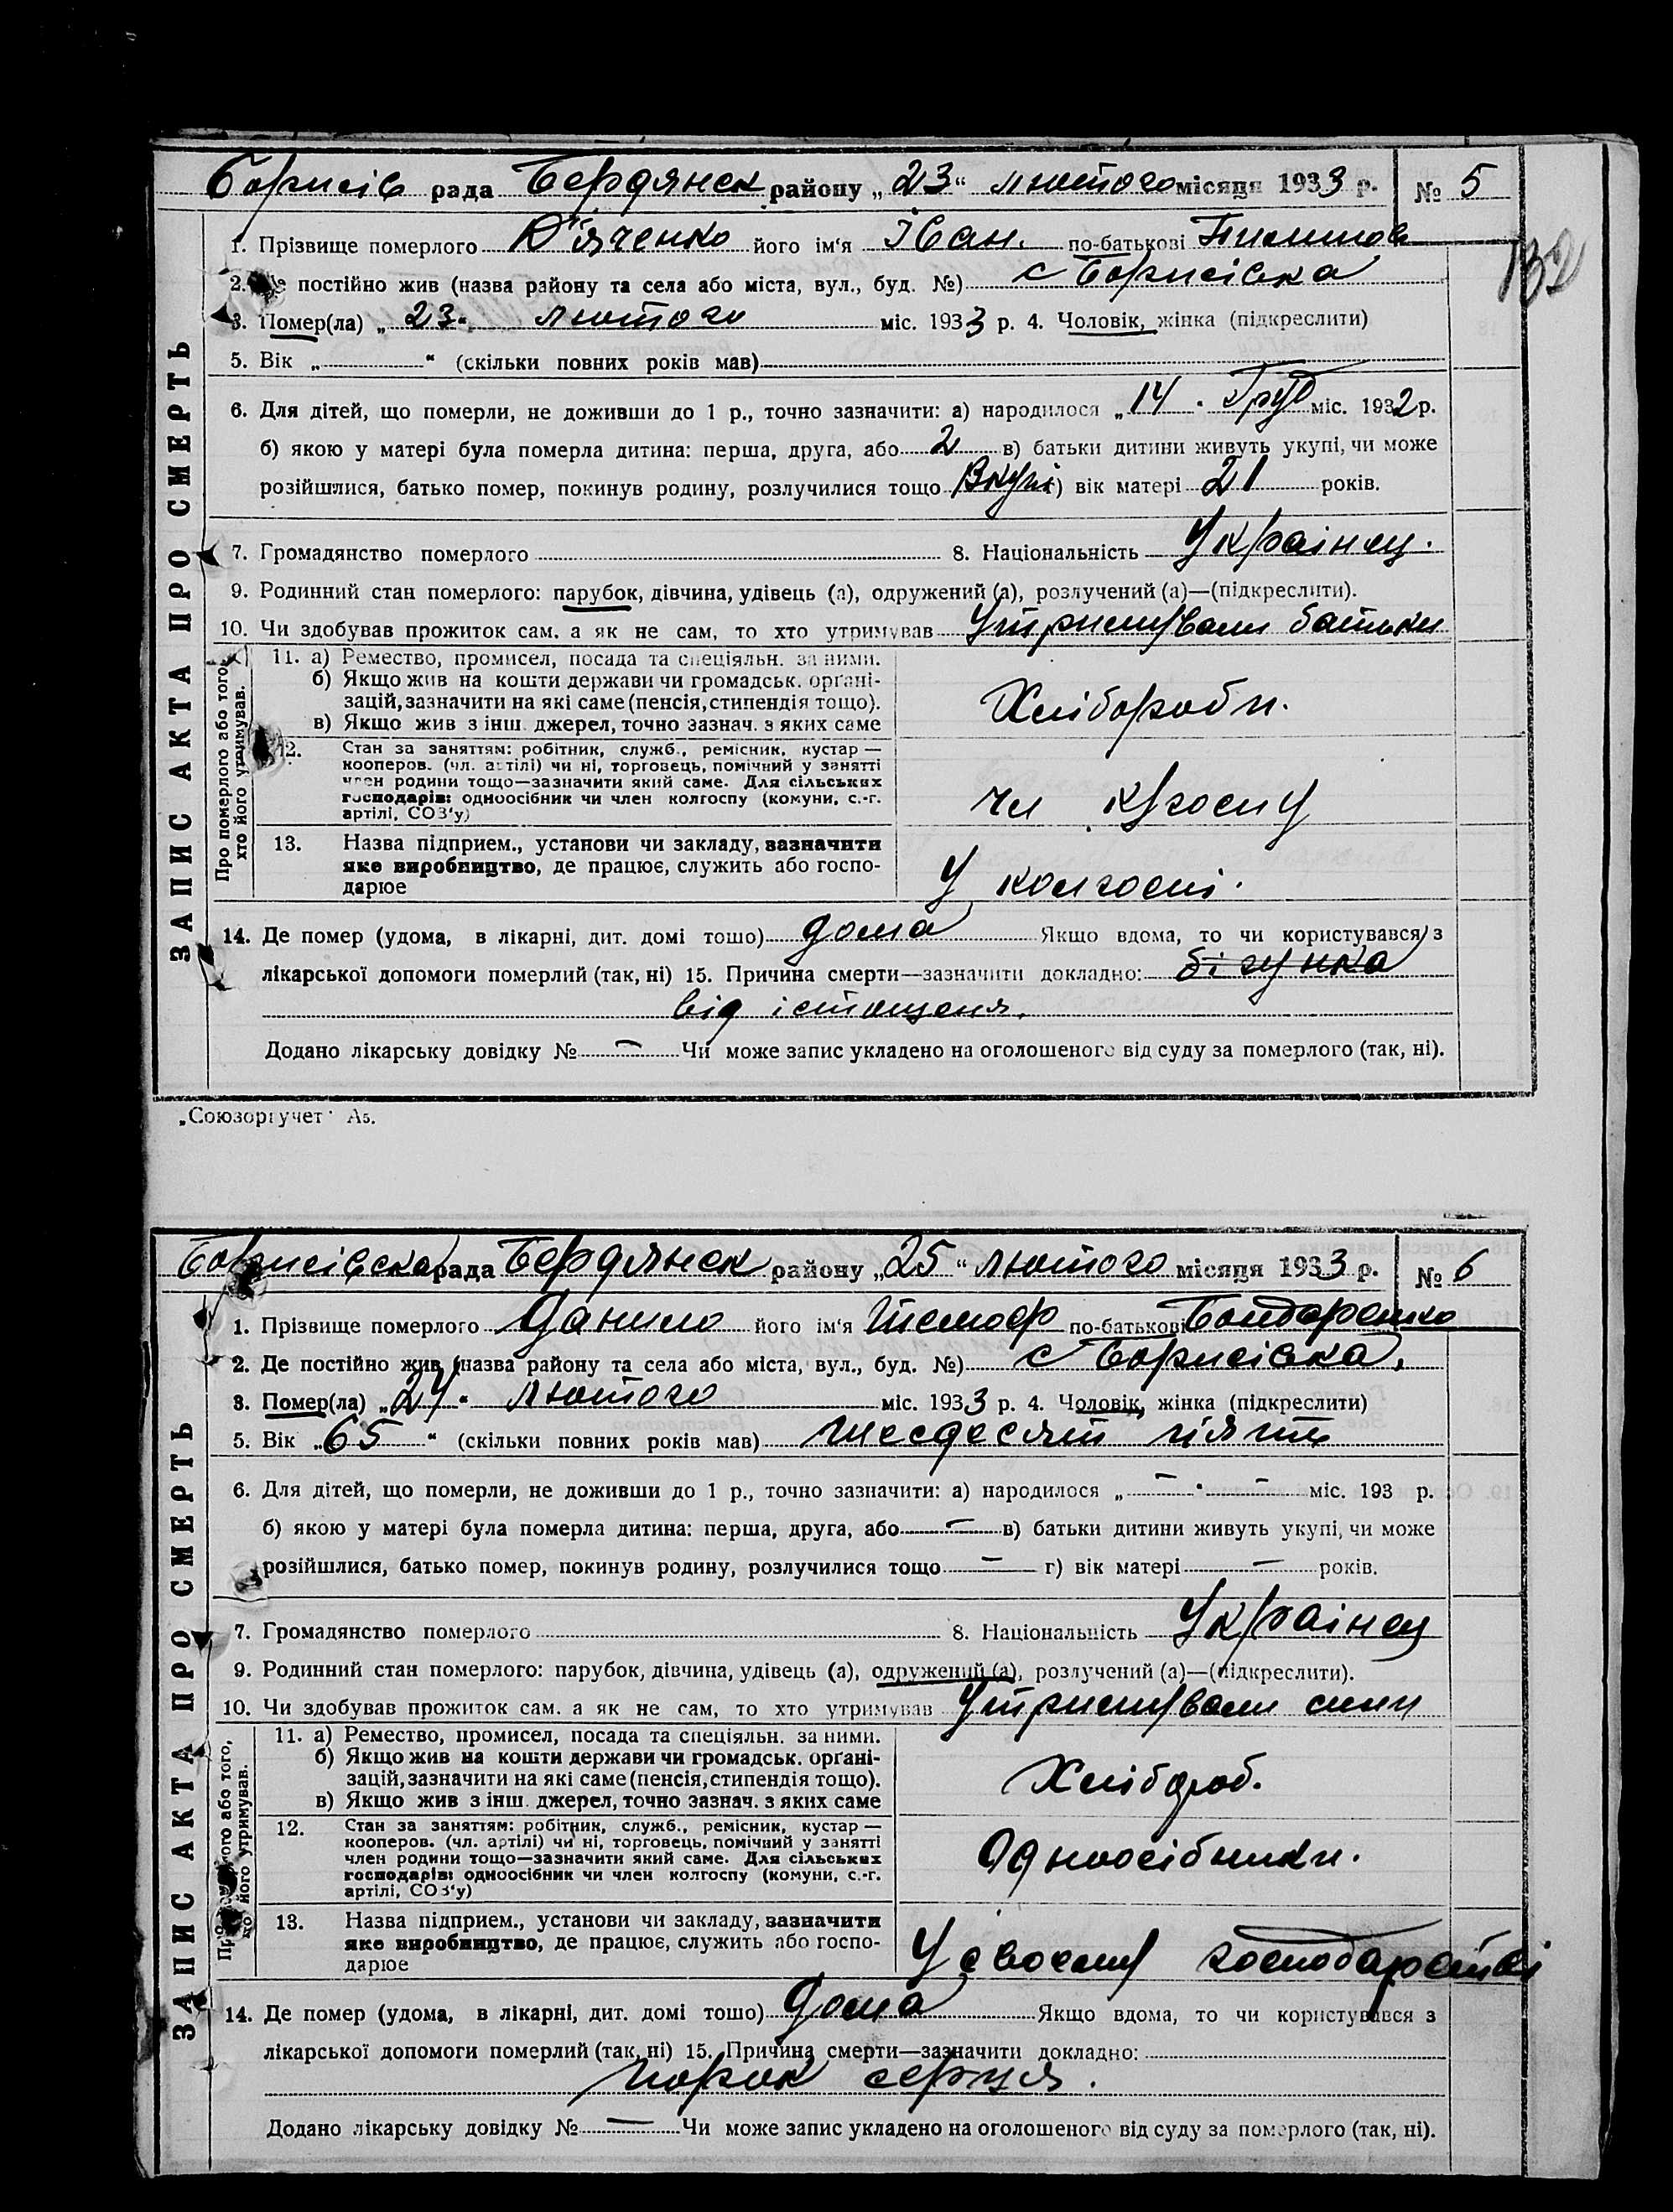 Борисів рада Бердянск району „23“ лютого місяця 1933 р. № 5
132
ЗАПИС АКТА ПРО СМЕРТЬ
1. Прізвище померлого Д'яченко його ім'я Іван. по-батькові
2. Де постійно жив (назва району та села або міста, вул., буд. №) с Борисівка
3. Помер(ла) „23“ лютого міс. 1933 р. 4. Чоловік, жінка (підкреслити)
5. Вік „ “ (скільки повних років мав)
6. Для дітей, що померли, не доживши до 1 р., точно зазначити: а) народилося „14“ Груд міс. 1932 р.
б) якою у матері була померла дитина: перша, друга, або 2 в) батьки дитини живуть укупі, чи може
розійшлися, батько помер, покинув родину, розлучилися тощо Вкупі г) вік матері 21 років.
7. Громадянство померлого 8. Національність Українец.
9. Родинний стан померлого: парубок, дівчина, удівець (а), одружений (а), розлучений (а)—(підкреслити).
10. Чи здобував прожиток сам, а як не сам, то хто утримував Утримували батьки
Про померлого або того, хто його утримував.
11. а) Ремество, промисел, посада та спеціяльн. за ними.
б) Якщо жив на кошти держави чи громадськ. органі-
зацій, зазначити на які саме (пенсія, стипендія тощо).
в) Якщо жив з інш. джерел, точно зазнач. з яких саме
Хлібороби.
12. Стан за заняттям: робітник, служб., ремісник, кустар —
кооперов. (чл. артілі) чи ні, торговець, помічний у занятті
член родини тощо—зазначити який саме. Для сільських
господарів: одноосібник чи член колгоспу (комуни, с.-г.
артілі, СОЗ'у)
чл кгоспу
13. Назва підприєм., установи чи закладу, зазначити
яке виробництво, де працює, служить або госпо-
дарює
У колгоспі.
14. Де помер (удома, в лікарні, дит. домі тошо) дома Якщо вдома, то чи користувався з
лікарської допомоги померлий (так, ні) 15. Причина смерти—зазначити докладно: бігунка
від істощеня.
Додано лікарську довідку № — Чи може запис укладено на оголошеного від суду за померлого (так, ні).
„Союзоргучет“ Аз.
Борисівска рада Бердянск району „25“ лютого місяця 1933 р. № 6
ЗАПИС АКТА ПРО СМЕРТЬ
1. Прізвище померлого Данило його ім'я Тимоф по-батькові Бондаренко
2. Де постійно жив (назва району та села або міста, вул., буд. №) с Борисівка.
3. Помер(ла) „24“ лютого міс. 1933 р. 4. Чоловік, жінка (підкреслити)
5. Вік „65“ (скільки повних років мав) шесдесят пять
6. Для дітей, що померли, не доживши до 1 р., точно зазначити: а) народилося „—“ — міс. 193 р.
б) якою у матері була померла дитина: перша, друга, або — в) батьки дитини живуть укупі, чи може
розійшлися, батько помер, покинув родину, розлучилися тощо — г) вік матері — років.
7. Громадянство померлого 8. Національність Українец
9. Родинний стан померлого: парубок, дівчина, удівець (а), одружений (а), розлучений (а)—(підкреслити).
10. Чи здобував прожиток сам, а як не сам, то хто утримував Утримували сини
Про померлого або того, хто його утримував.
11. а) Ремество, промисел, посада та спеціяльн. за ними.
б) Якщо жив на кошти держави чи громадськ. органі-
зацій, зазначити на які саме (пенсія, стипендія тощо).
в) Якщо жив з інш. джерел, точно зазнач. з яких саме
Хлібороб.
12. Стан за заняттям: робітник, служб., ремісник, кустар —
кооперов. (чл. артілі) чи ні, торговець, помічний у занятті
член родини тощо—зазначити який саме. Для сільських
господарів: одноосібник чи член колгоспу (комуни, с.-г.
артілі, СОЗ'у)
Одноосібники.
13. Назва підприєм., установи чи закладу, зазначити
яке виробництво, де працює, служить або госпо-
дарює
У своєму господарстві
14. Де помер (удома, в лікарні, дит. домі тошо) Дома Якщо вдома, то чи користувався з
лікарської допомоги померлий (так, ні) 15. Причина смерти—зазначити докладно:
порок серця.
Додано лікарську довідку № — Чи може запис укладено на оголошеного від суду за померлого (так, ні).